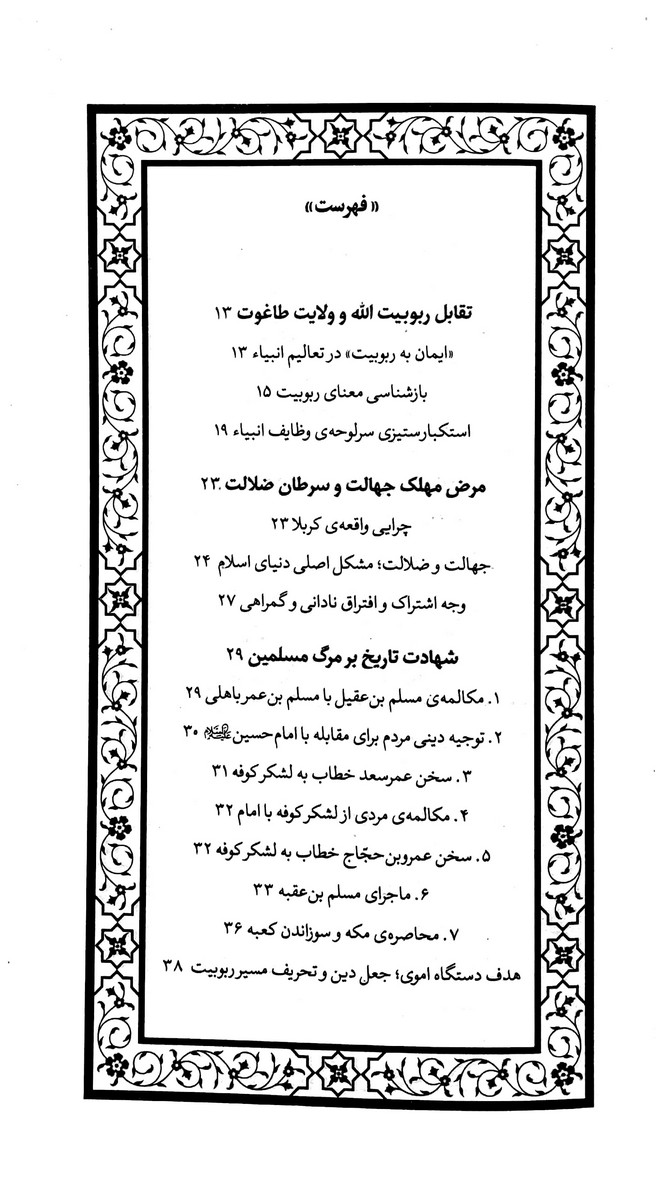 « فهرست»
تقابل ربوبیت الله و ولایت طاغوت ۱۳
«ایمان به ربوبیت» در تعالیم انبیاء ۱۳
بازشناسی معنای ربوبیت ۱۵
استکبارستیزی سرلوحه‌ی وظایف انبیاء ۱۹
مرض مهلک جهالت و سرطان ضلالت ۲۳
چرایی واقعه‌ی کربلا ۲۳
جهالت و ضلالت؛ مشکل اصلی دنیای اسلام ۲۴
وجه اشتراک و افتراق نادانی و گمراهی ۲۷
شهادت تاریخ بر مرگ مسلمین ۲۹
۱. مکالمه‌ی مسلم بن‌عقیل با مسلم بن‌عمر باهلی ۲۹
۲. توجیه دینی مردم برای مقابله با امام حسین ۳۰
۳. سخن عمرسعد خطاب به لشکر کوفه ۳۱
۴. مکالمه‌ی مردی از لشکر کوفه با امام ۳۲
۵. سخن عمروبن‌حجّاج خطاب به لشکر کوفه ۳۲
۶. ماجرای مسلم بن‌عقبه ۳۳
۷. محاصره‌ی مکه و سوزاندن کعبه ۳۶
هدف دستگاه اموی؛ جعل دین و تحریف مسیر ربوبیت ۳۸